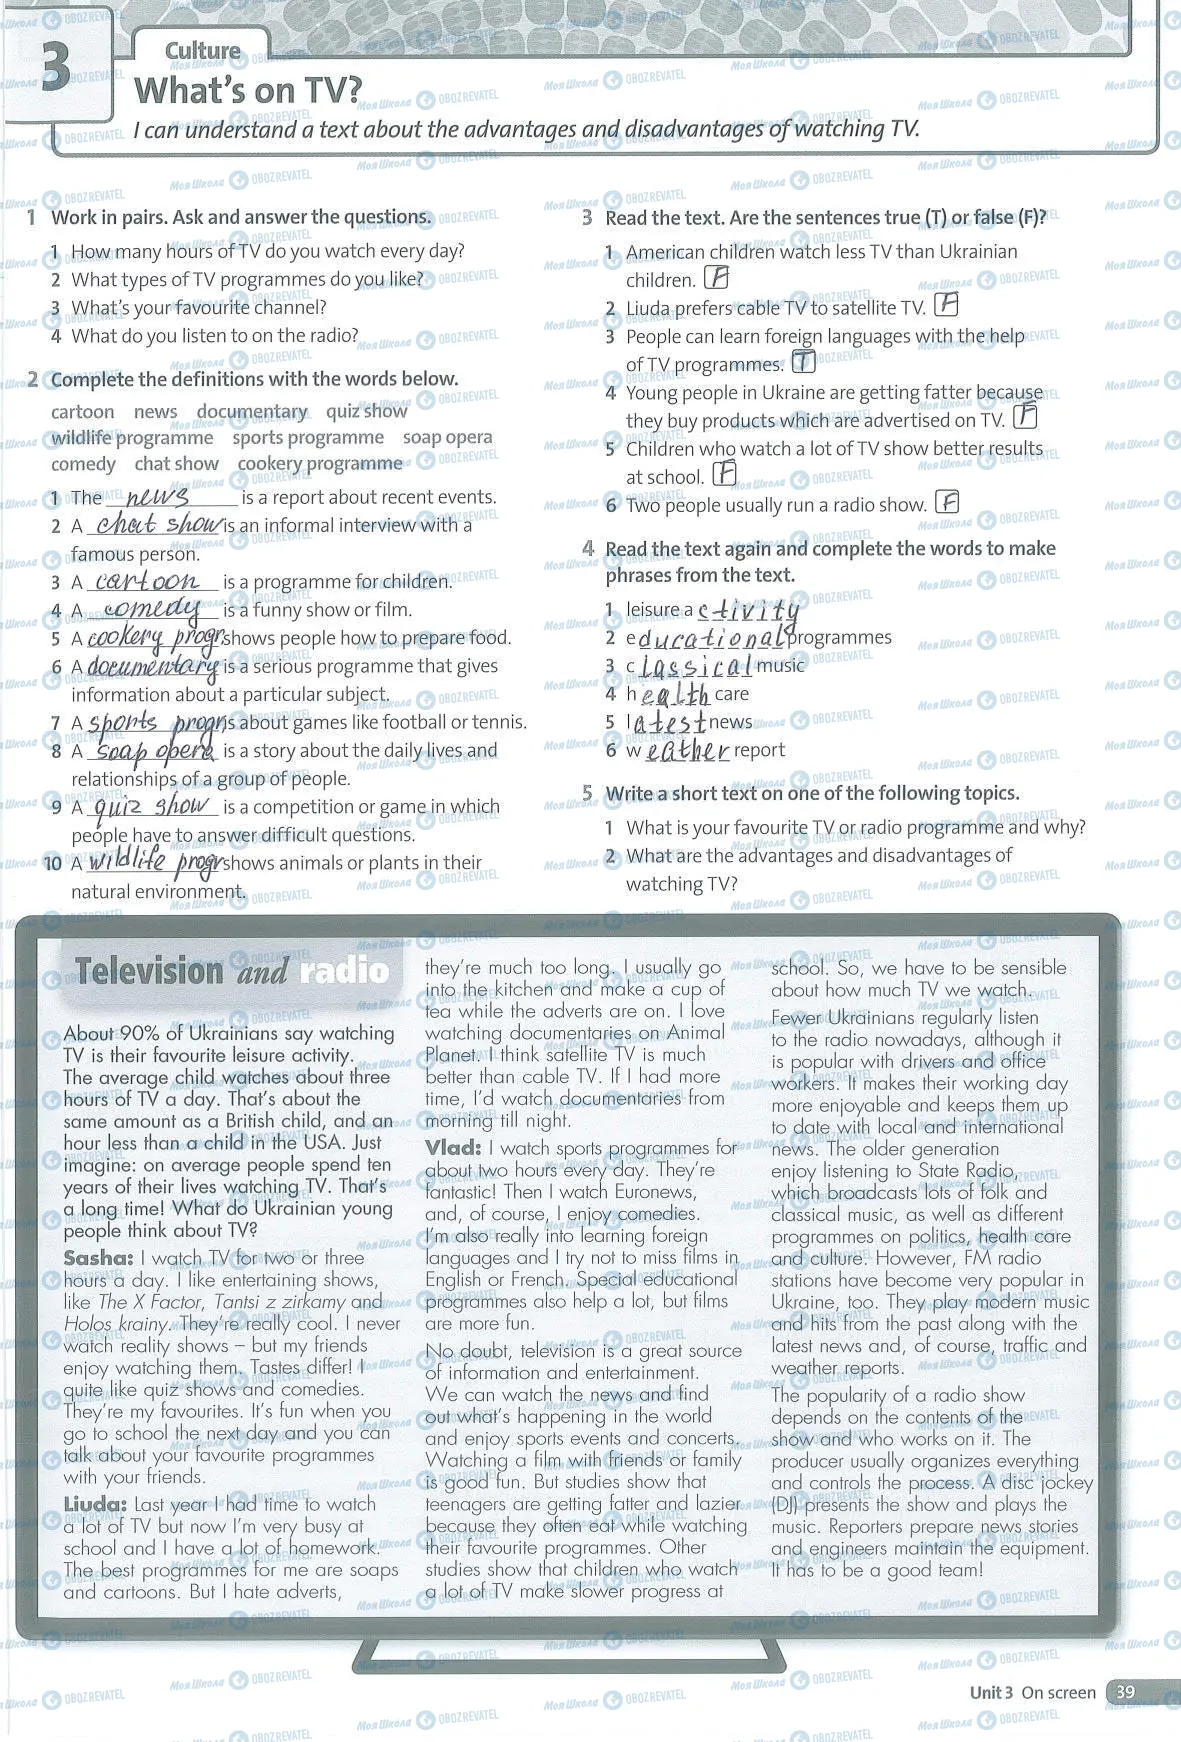 3
Culture
What's on TV?
I can understand a text about the advantages and disadvantages of watching TV.
1 Work in pairs. Ask and answer the questions.
1 How many hours of TV do you watch every day?
2 What types of TV programmes do you like?
3 What's your favourite channel?
4 What do you listen to on the radio?
2 Complete the definitions with the words below.
cartoon news documentary quiz show
wildlife programme sports programme soap opera
comedy chat show cookery programme
1 The news is a report about recent events.
2 A chat show is an informal interview with a
famous person.
3 A cartoon is a programme for children.
4 A comedy is a funny show or film.
5 A cookery progr. shows people how to prepare food.
6 A documentary is a serious programme that gives
information about a particular subject.
7 A sports progr. is about games like football or tennis.
8 A soap opera is a story about the daily lives and
relationships of a group of people.
9 A quiz show is a competition or game in which
people have to answer difficult questions.
10 A wildlife progr shows animals or plants in their
natural environment.
3 Read the text. Are the sentences true (T) or false (F)?
1 American children watch less TV than Ukrainian
children. F
2 Liuda prefers cable TV to satellite TV. F
3 People can learn foreign languages with the help
of TV programmes. T
4 Young people in Ukraine are getting fatter because
they buy products which are advertised on TV. F
5 Children who watch a lot of TV show better results
at school. F
6 Two people usually run a radio show. F
4 Read the text again and complete the words to make
phrases from the text.
1 leisure activity
2 educational programmes
3 classical music
4 health care
5 latest news
6 weather report
5 Write a short text on one of the following topics.
1 What is your favourite TV or radio programme and why?
2 What are the advantages and disadvantages of
watching TV?
Television and radio
About 90% of Ukrainians say watching
TV is their favourite leisure activity.
The average child watches about three
hours of TV a day. That's about the
same amount as a British child, and an
hour less than a child in the USA. Just
imagine: on average people spend ten
years of their lives watching TV. That's
a long time! What do Ukrainian young
people think about TV?
Sasha: I watch TV for two or three
hours a day. I like entertaining shows,
like The X Factor, Tantsi z zirkamy and
Holos krainy. They're really cool. I never
watch reality shows – but my friends
enjoy watching them. Tastes differ! I
quite like quiz shows and comedies.
They're my favourites. It's fun when you
go to school the next day and you can
talk about your favourite programmes
with your friends.
Liuda: Last year I had time to watch
a lot of TV but now I'm very busy at
school and I have a lot of homework.
The best programmes for me are soaps
and cartoons. But I hate adverts,
they're much too long. I usually go
into the kitchen and make a cup of
tea while the adverts are on. I love
watching documentaries on Animal
Planet. I think satellite TV is much
better than cable TV. If I had more
time, I'd watch documentaries from
morning till night.
Vlad: I watch sports programmes for
about two hours every day. They're
fantastic! Then I watch Euronews,
and, of course, I enjoy comedies.
I'm also really into learning foreign
languages and I try not to miss films in
English or French. Special educational
programmes also help a lot, but films
are more fun.
No doubt, television is a great source
of information and entertainment.
We can watch the news and find
out what's happening in the world
and enjoy sports events and concerts.
Watching a film with friends or family
is good fun. But studies show that
teenagers are getting fatter and lazier
because they often eat while watching
their favourite programmes. Other
studies show that children who watch
a lot of TV make slower progress at
school. So, we have to be sensible
about how much TV we watch.
Fewer Ukrainians regularly listen
to the radio nowadays, although it
is popular with drivers and office
workers. It makes their working day
more enjoyable and keeps them up
to date with local and international
news. The older generation
enjoy listening to State Radio,
which broadcasts lots of folk and
classical music, as well as different
programmes on politics, health care
and culture. However, FM radio
stations have become very popular in
Ukraine, too. They play modern music
and hits from the past along with the
latest news and, of course, traffic and
weather reports.
The popularity of a radio show
depends on the contents of the
show and who works on it. The
producer usually organizes everything
and controls the process. A disc jockey
(DJ) presents the show and plays the
music. Reporters prepare news stories
and engineers maintain the equipment.
It has to be a good team!
Unit 3 On screen 39
Моя Школа OBOZREVATEL